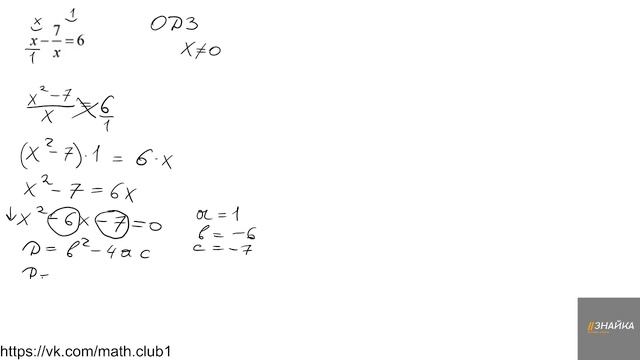 x 1
x/1 - 7/x = 6
ОДЗ
x ≠ 0
x² - 7 / x = 6/1
(x² - 7) · 1 = 6 · x
x² - 7 = 6x
↓ x² - 6x - 7 = 0
a = 1
b = -6
c = -7
D = b² - 4ac
D =
//ЗНАЙКА
https://vk.com/math.club1